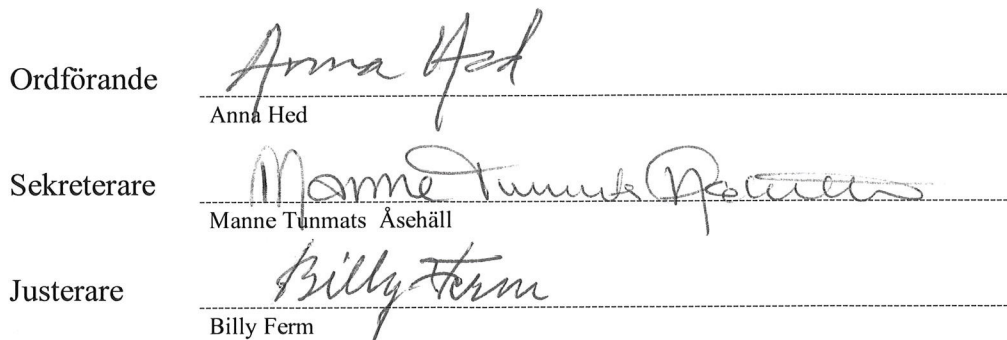 Ordförande Anna Hed
Anna Hed
Sekreterare Manne Tunmats
Manne Tunmats Åsehäll
Justerare Billy Ferm
Billy Ferm